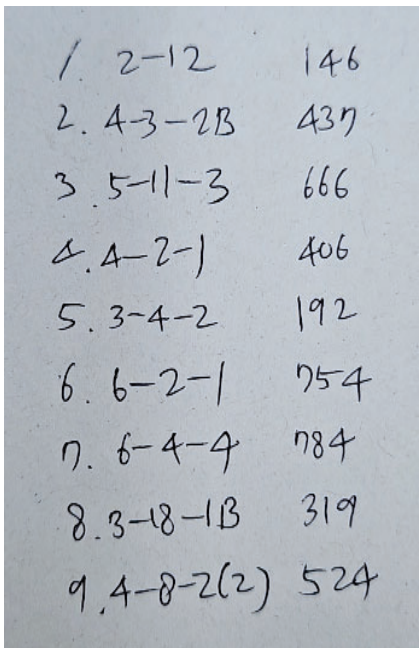 1. 2-12 146
2. 4-3-2B 437
3. 5-11-3 666
4. 4-2-1 406
5. 3-4-2 192
6. 6-2-1 754
7. 6-4-4 784
8. 3-18-1B 319
9. 4-8-2(2) 524